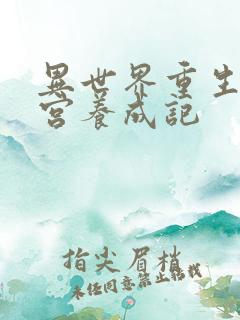 異世界重生
宮養成記
指尖眉梢
未经同意禁止转载